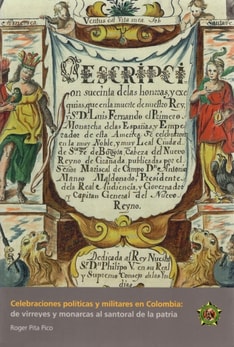 Ventus est Vita mea. Job
DESCRIPCI
on sucinta de las honrras, y exe
quias, que en la muerte de nuestro Rey,
y Sr. Dn. Luis Fernando el Primero
Monarcha de las Españas, y Empe
rador de esta America. Se celebraron
en la muy Noble, y muy Leal Ciudad
de Santa Fe de Bogotá, Cabeza del Nuevo
Reyno de Granada publicadas por el
Señor Mariscal de Campo Dn. Antonio
Manso Maldonado, Presidente
de la Real Audiencia, y Governador
y Capitan General del Nuevo
Reyno.
Dedicada al Rey Nuestro
Sr. Dn. Phelipe V. en su Real
y Supremo Consejo de las In
Celebraciones políticas y militares en Colombia:
de virreyes y monarcas al santoral de la patria
Roger Pita Pico